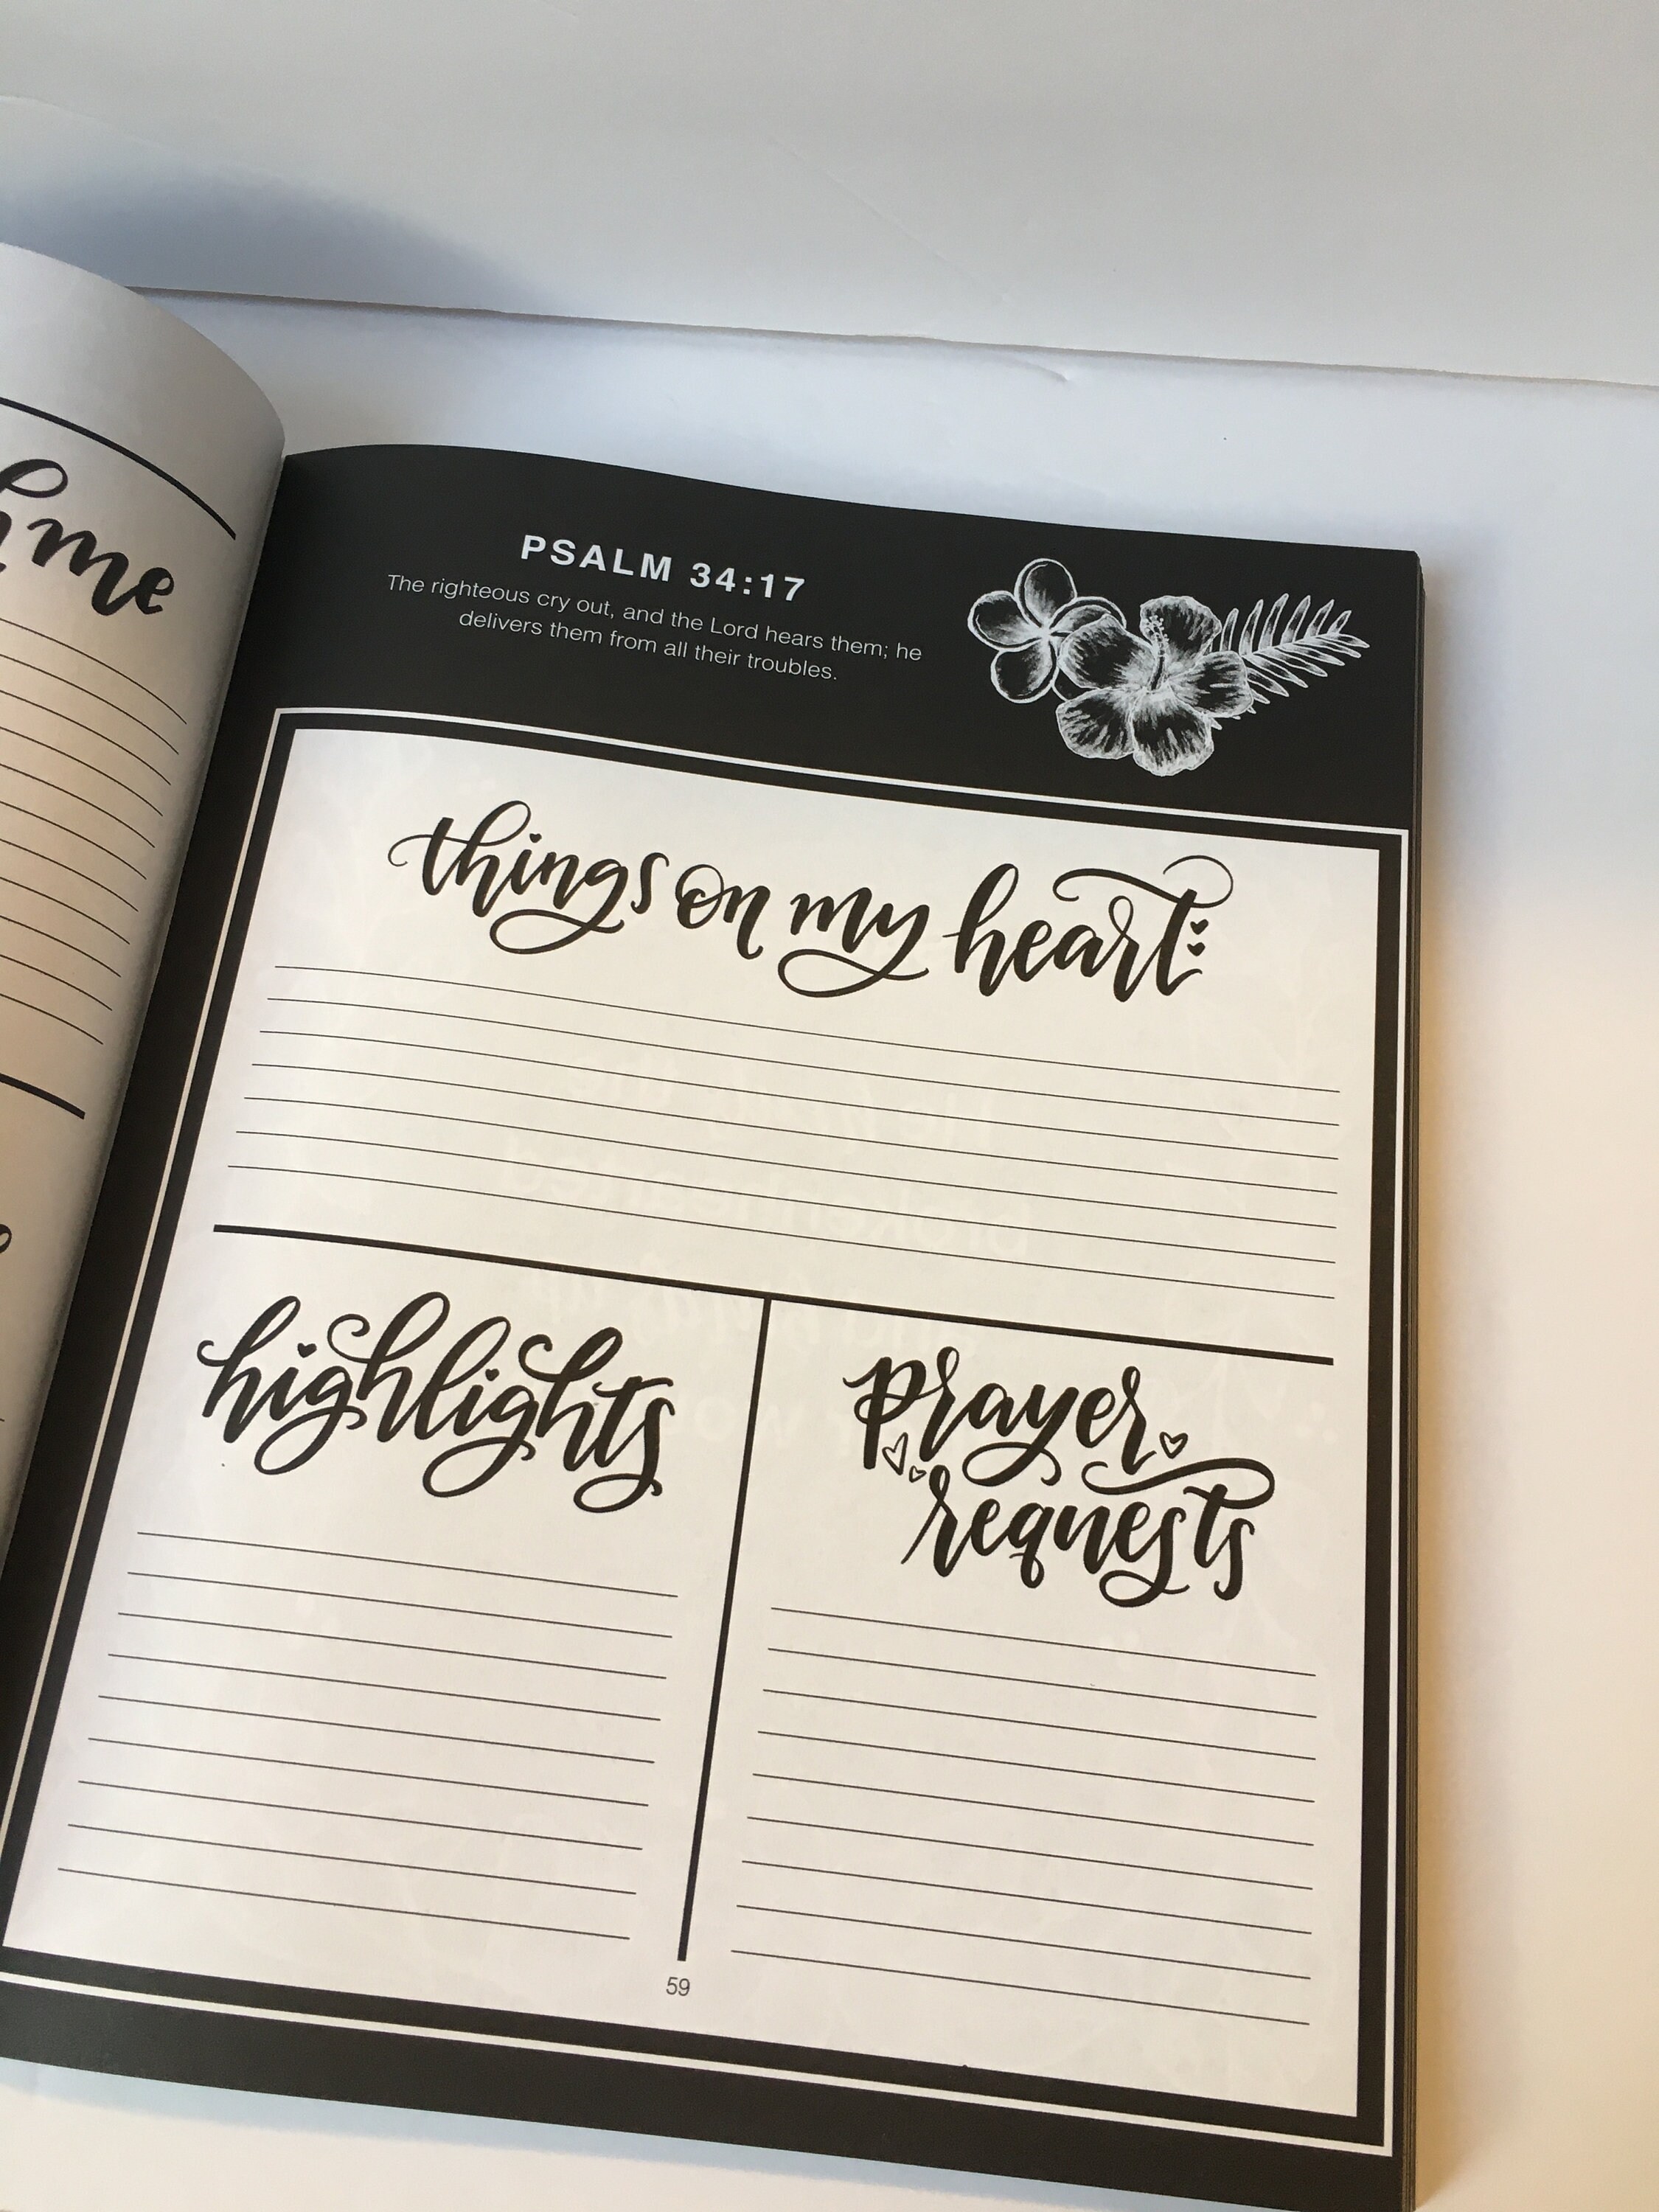 me
PSALM 34:17
The righteous cry out, and the Lord hears them; he
delivers them from all their troubles.
things on my heart:
highlights
prayer
requests
59